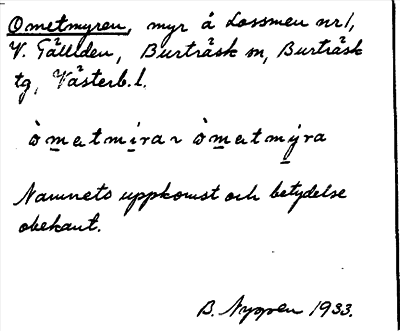 Ometmyren, myr å Lossmen nr 1,
V. Fällden, Burträsk sn, Burträsk
tg, Västerb. l.
òmɐtmirar òmɐtmýra
Namnets uppkomst och betydelse
obekant.
B. Nygren 1933.